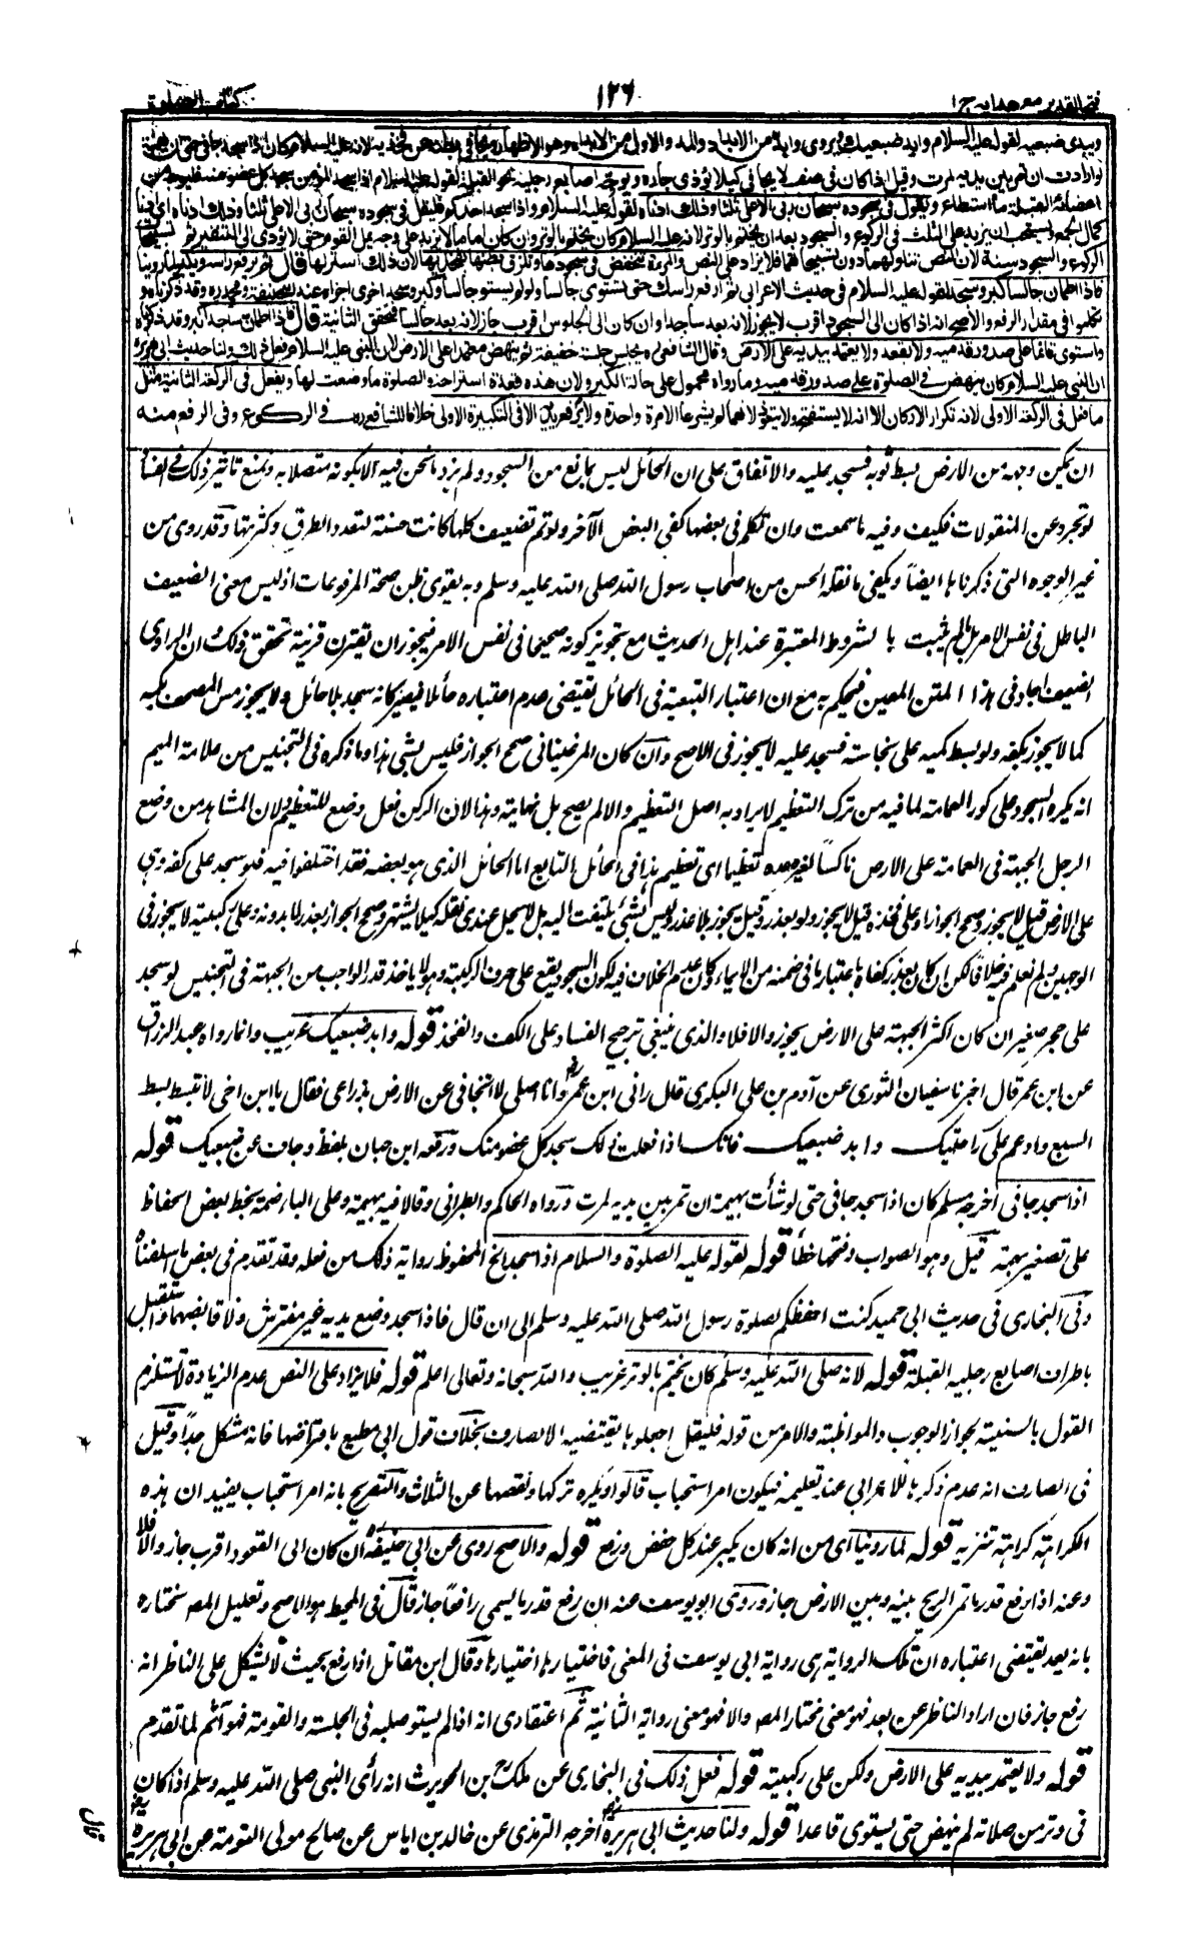 فتح القدير مع هدايه ج ١
١٢٦
كتاب الصلوة
ويبدى ضبعيه لقوله عليه السلام وابد ضبعيك ويروى وابد من الابداد وهو المد والاول من الابداء وهو الاظهار ويجافى بطنه عن فخذيه لانه عليه السلام كان اذا سجد جافى حتى ان بهيمة
لو ارادت ان تمر بين يديه لمرت وقيل اذا كان فى صف لا يجافى كيلا يؤذى جاره ويوجه اصابع رجليه نحو القبلة لقوله عليه السلام اذا سجد المؤمن سجد كل عضو منه فليوجه من
اعضائه القبلة ما استطاع ويقول فى سجوده سبحان ربى الاعلى ثلثا وذلك ادناه لقوله عليه السلام واذا سجد احدكم فليقل فى سجوده سبحان ربى الاعلى ثلثا وذلك ادناه اى ادنى
كمال الجمع ويستحب ان يزيد على الثلث فى الركوع والسجود بعد ان يختم بالوتر لانه عليه السلام كان يختم بالوتر وان كان اماما لا يزيد على وجه يمل القوم حتى لا يؤدى الى التنفير ثم تسبيحات
الركوع والسجود سنة لان النص تناولهما دون تسبيحاتهما فلا يزاد على النص والمرأة تنخفض فى سجودها وتلزق بطنها بفخذيها لان ذلك استر لها قال ثم يرفع راسه ويكبر لما روينا
فاذا اطمأن جالسا كبر وسجد لقوله عليه السلام فى حديث الاعرابى ثم ارفع راسك حتى تستوى جالسا ولو لم يستو جالسا وكبر وسجد اخرى اجزاه عند ابى حنيفة ومحمد وقد ذكرناه و
تكلموا فى مقدار الرفع والاصح انه اذا كان الى السجود اقرب لا يجوز لانه يعد ساجدا وان كان الى الجلوس اقرب جاز لانه يعد جالسا فتحقق الثانية قال فاذا اطمأن ساجدا كبر وقد ذكرناه
واستوى قائما على صدور قدميه ولا يقعد ولا يعتمد بيديه على الارض وقال الشافعى يجلس جلسة خفيفة ثم ينهض معتمدا على الارض لان النبى عليه السلام فعل ذلك ولنا حديث ابى هريرة
ان النبى عليه السلام كان ينهض فى الصلوة على صدور قدميه وما رواه محمول على حالة الكبر ولان هذه قعدة استراحة والصلوة ما وضعت لها ويفعل فى الركعة الثانية مثل
ما فعل فى الركعة الاولى لانه تكرار الاركان الا انه لا يستفتح ولا يتعوذ لانهما لم يشرعا الا مرة واحدة ولا يرفع يديه الا فى التكبيرة الاولى خلافا للشافعى فى الركوع وفى الرفع منه
ان يمكن وجهه من الارض بسط ثوبه فسجد عليه والاتفاق على ان الحائل ليس بمانع من السجود ولم يزد ما نحن فيه الا بكونه متصلا به ونمنع تاثير ذلك فى الفساد
لو تجرد عن المنقولات فكيف وفيه ما سمعت وان تكلم فى بعضها كفى البعض الآخر ولو تم تضعيف كلها كانت حسنة لتعدد الطرق وكثرتها وقد روى من
غير الوجوه التى ذكرناها ايضا ويكفى ما نقله الحسن من اصحاب رسول الله صلى الله عليه وسلم وبه يقوى ظن صحة المرفوعات اذ ليس معنى الضعيف
الباطل فى نفس الامر بل ما لم يثبت بالشروط المعتبرة عند اهل الحديث مع تجويز كونه صحيحا فى نفس الامر فيجوز ان تقترن قرينة تحقق ذلك ان الراوى
الضعيف اجاد فى هذا المتن المعين فيحكم به مع ان اعتبار التبعية فى الحائل يقتضى عدم اعتباره حائلا فيصير كانه سجد بلا حائل ولا يجوز مس المصحف بكمه
كما لا يجوز بكفه ولو بسط كميه على نجاسة فسجد عليه لا يجوز فى الاصح وان كان المرغينانى صحح الجواز فليس بشئ هذا وما ذكره فى التجنيس من علامة الميم
انه يكره السجود على كور العمامة لما فيه من ترك التعظيم لا يراد به اصل التعظيم والا لم يصح بل نهايته وهذا لان الركن فعل وضع للتعظيم ولان المشاهد من وضع
الرجل الجبهة فى العمامة على الارض ناكسا لغيره عده تعظيما اى تعظيم هذا فى الحائل التابع اما الحائل الذى هو بعضه فقد اختلفوا فيه فلو سجد على كفه وهى
على الارض قيل لا يجوز وصحح الجواز او على فخذه قيل لا يجوز ولو بعذر وقيل يجوز بلا عذر وليس بشئ يلتفت اليه بل لا يحل عندى نقله كيلا يشتهر وصحح الجواز بعذر لا بدونه وعلى ركبتيه لا يجوز فى
الوجهين ولم نعلم فيه خلافا لكن ان كان بعذر كفاه باعتبار ما فى ضمنه من الايماء وكان عدم الخلاف فيه لكون السجود يقع على حرف الركبة وهو لا ياخذ قدر الواجب من الجبهة فى التجنيس لو سجد
على حجر صغير ان كان اكثر الجبهة على الارض يجوز والا فلا والذى ينبغى ترجيح الفساد على الكف والفخذ قوله وابد ضبعيك غريب وانما رواه عبد الرزاق
عن ابن عمر قال اخبرنا سفيان الثورى عن آدم بن على البكرى قال رانى ابن عمر وانا اصلى لا اتجافى عن الارض بذراعى فقال يا ابن اخى لا تبسط بسط
السبع وادعم على راحتيك وابد ضبعيك فانك اذا فعلت ذلك سجد كل عضو منك ورفعه ابن حبان بلفظ وجاف عن ضبعيك قوله
اذا سجد جافى اخرجه مسلم كان اذا سجد جافى حتى لو شأت بهيمة ان تمر بين يديه لمرت ورواه الحاكم والطبرانى وقالا فيه بهيمة وعلى الباء ضمة بخط بعض الحفاظ
على تصغير بهمة قيل وهو الصواب وفتحها خطأ قوله لقوله عليه الصلوة والسلام اذا سجد الخ المحفوظ رواية ذلك من فعله وقد تقدم فى بعض ما اسلفناه
وفى البخارى فى حديث ابى حميد كنت احفظكم لصلوة رسول الله صلى الله عليه وسلم الى ان قال فاذا سجد وضع يديه غير مفترش ولا قابضهما واستقبل
باطراف اصابع رجليه القبلة قوله لانه صلى الله عليه وسلم كان يختم بالوتر غريب والله سبحانه وتعالى اعلم قوله فلا يزاد على النص عدم الزيادة لا تستلزم
القول بالسنية بجواز الوجوب والمواظبة والامر من قوله فليقل اجعلوها يقتضيه الا لصارف بخلاف قول ابى مطيع بافتراضها فانه مشكل جدا وقيل
فى الصارف انه عدم ذكرها للاعرابى عند تعليمه فيكون امر استحباب قالوا ويكره تركها ونقصها عن الثلاث والتصريح بانه امر استحباب يفيد ان هذه
الكراهة كراهة تنزيه قوله لما روينا اى من انه كان يكبر عند كل خفض ورفع قوله والاصح روى عن ابى حنيفة ان كان الى القعود اقرب جاز والا فلا
وعنه اذا رفع قدر ما تمر الريح بينه وبين الارض جاز وروى ابو يوسف عنه ان رفع قدر ما يسمى رافعا جاز قال فى المحيط هو الاصح وتعليل المصـ مختاره
بانه يعد يقتضى اعتباره ان تلك الرواية هى رواية ابى يوسف فى المعنى فاختيارها اختيارها وقال ابن مقاتل اذا رفع بحيث لا يشكل على الناظر انه
رفع جاز فان اراد الناظر عن بعد فهو معنى مختار المصـ والا فهو معنى رواية الثانية ثم اعتقادى انه اذا لم يستو صلبه فى الجلسة والقومة فهو آثم لما تقدم
قوله ولا يعتمد بيديه على الارض ولكن على ركبتيه قوله فعل ذلك فى البخارى عن ملك بن الحويرث انه رأى النبى صلى الله عليه وسلم اذا كان
فى وتر من صلاته لم ينهض حتى يستوى قاعدا قوله ولنا حديث ابى هريرة اخرجه الترمذى عن خالد بن اياس عن صالح مولى التومة عن ابى هريرة
قال